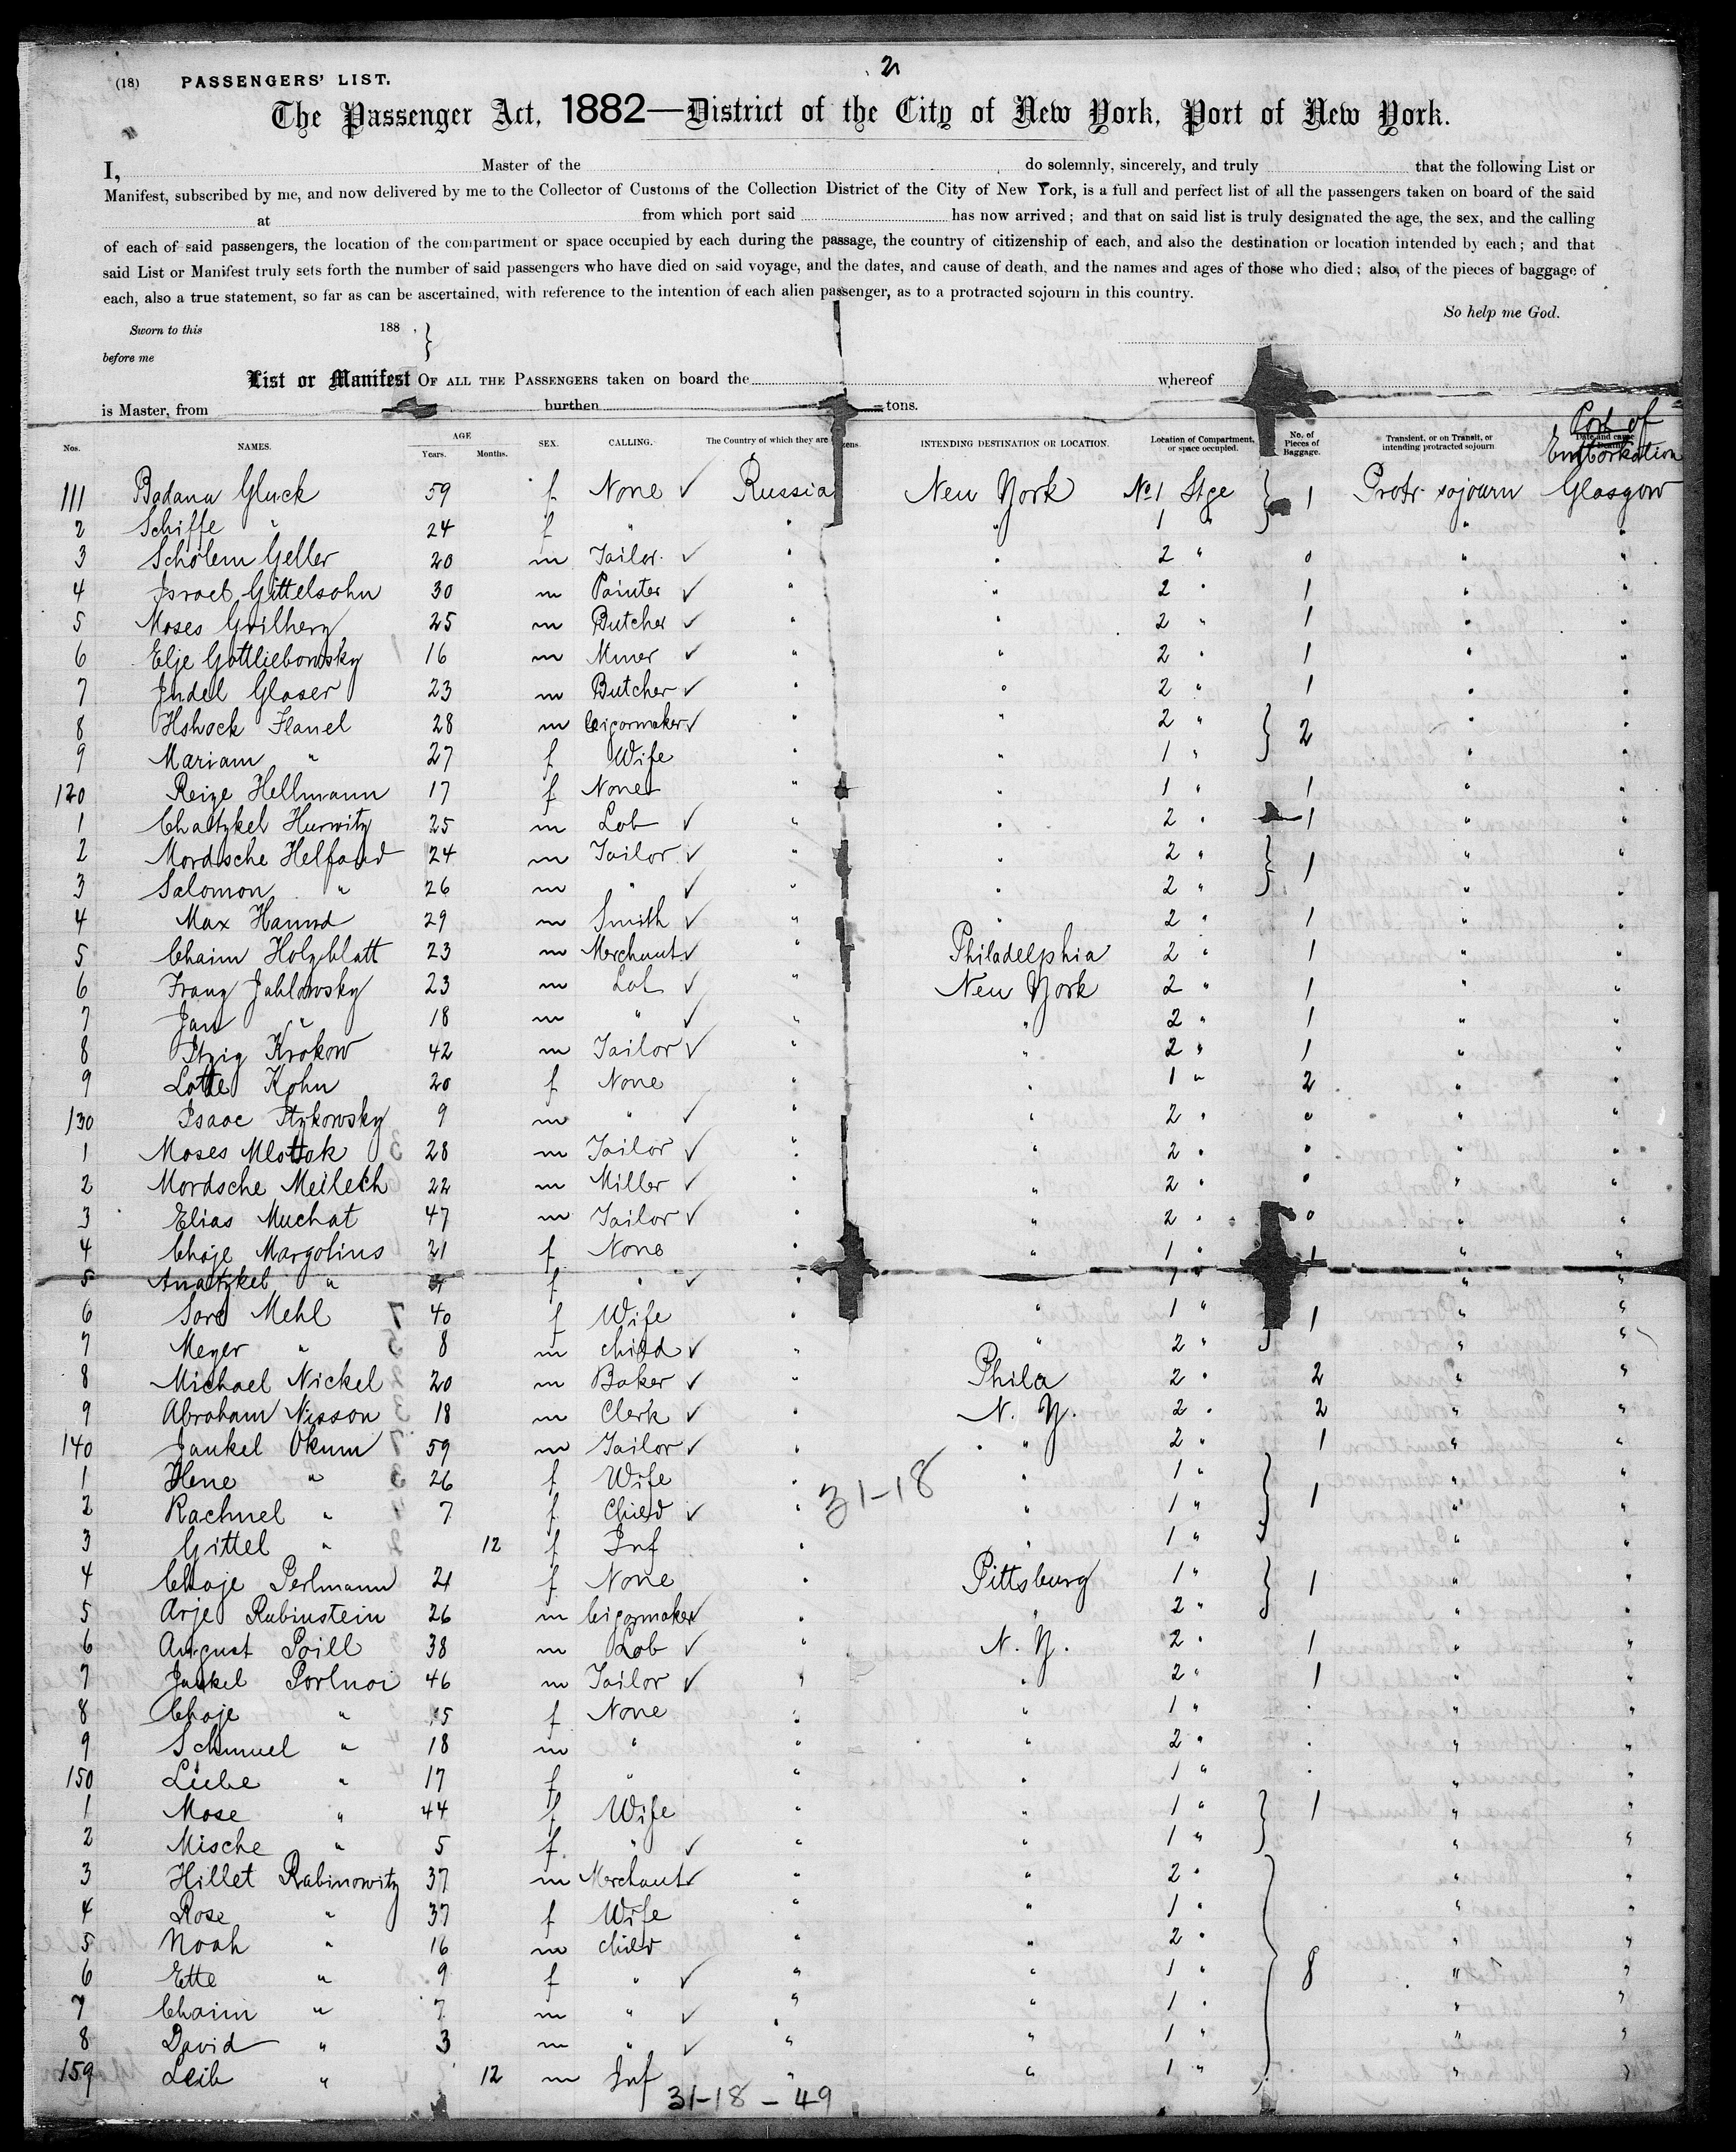 2
(18) PASSENGERS' LIST.
The Passenger Act, 1882—District of the City of New York, Port of New York.
I, Master of the do solemnly, sincerely, and truly that the following List or
Manifest, subscribed by me, and now delivered by me to the Collector of Customs of the Collection District of the City of New York, is a full and perfect list of all the passengers taken on board of the said
at from which port said has now arrived; and that on said list is truly designated the age, the sex, and the calling
of each of said passengers, the location of the compartment or space occupied by each during the passage, the country of citizenship of each, and also the destination or location intended by each; and that
said List or Manifest truly sets forth the number of said passengers who have died on said voyage, and the dates, and cause of death, and the names and ages of those who died; also, of the pieces of baggage of
each, also a true statement, so far as can be ascertained, with reference to the intention of each alien passenger, as to a protracted sojourn in this country.
So help me God.
Sworn to this 188 ,
before me
List or Manifest OF ALL THE PASSENGERS taken on board the whereof
is Master, from burthen tons.
Port of Embarkation
Nos. NAMES. AGE Years. Months. SEX. CALLING. The Country of which they are INTENDING DESTINATION OR LOCATION. Location of Compartment, or space occupied. No. of Pieces of Baggage. Transient, or on Transit, or intending protracted sojourn Date and cause
111 Badana Gluck 59 f None ✓ Russia New York No 1 Stge 1 Protr. sojourn Glasgow
2 Schiffe " 24 f " " " 1 " " "
3 Scholem Geller 20 m Tailor ✓ " " 2 " 0 " "
4 Israel Gittelsohn 30 m Painter ✓ " " 2 " 1 " "
5 Moses 25 m Butcher ✓ " " 2 " 1 " "
6 Elje Gottliebowsky 16 m Miner ✓ " " 2 " 1 " "
7 Judel Glaser 23 m Butcher ✓ " " 2 " 1 " "
8 Flanel 28 m Cigormaker ✓ " " 2 " 2 " "
9 Mariam " 27 f Wife " " 1 " " "
120 Reize Hellmann 17 f None " " 1 " 1 " "
1 Chatzkel Hurwitz 25 m Lob ✓ " " 2 " 1 " "
2 Mordsche Helfand 24 m Tailor ✓ " " 2 " 1 " "
3 Salomon " 26 m " ✓ " " 2 " " "
4 Max 29 m Smith ✓ " " 2 " 1 " "
5 Chaim Holzblatt 23 m Merchant ✓ " Philadelphia 2 " 1 " "
6 Franz Jablowsky 23 m Lob ✓ " New York 2 " 1 " "
7 Jan " 18 m " ✓ " " 2 " 1 " "
8 Itzig Krokow 42 m Tailor ✓ " " 2 " 1 " "
9 Lotte Kohn 20 f None " " 1 " 2 " "
130 Isaac Itzkowsky 9 m " ✓ " " 2 " 0 " "
1 Moses Mlotok 28 m Tailor ✓ " " 2 " 0 " "
2 Mordsche Meilech 22 m Miller ✓ " " 2 " 0 " "
3 Elias Muchat 47 m Tailor ✓ " " 2 " 0 " "
4 Chaje Margolius 21 f None " " 1 " 1 " "
5 " f " ✓ " " 1 " " "
6 Sore Mehl 40 f Wife " " 1 " 1 " "
7 Meyer " 8 m child ✓ " " 2 " " "
8 Michael Nickel 20 m Baker ✓ " Phila 2 " 2 " "
9 Abraham Nisson 18 m Clerk ✓ " N. Y. 2 " 2 " "
140 Jankel Okum 59 m Tailor ✓ " " 2 " 1 " "
1 Hene " 26 f Wife " " 1 " 1 " "
31-18
2 Rachmel " 7 f Child ✓ " " 1 " " "
3 Gittel " 12 f Inf " " 1 " " "
4 Chaje Perlmann 21 f None " Pittsburg 1 " 1 " "
5 Arje Rubinstein 26 m Cigormaker ✓ " " 2 " " "
6 August Poill 38 m Lob ✓ " N. Y. 2 " 1 " "
7 Jankel Portnoi 46 m Tailor ✓ " " 2 " 1 " "
8 Chaje " 15 f None " " 1 " " "
9 Schmuel " 18 m " " " 2 " " "
150 Liebe " 17 f " " " 1 " " "
1 Mose " 44 f Wife " " 1 " 1 " "
2 Mische " 5 f " ✓ " " 1 " " "
3 Hillet Rabinowitz 37 m Merchant ✓ " " 2 " " "
4 Rose " 37 f Wife " " 1 " " "
5 Noah " 16 m child " " 2 " " "
6 Ette " 9 f " ✓ " " 1 " 8 " "
7 Chaim " 7 m " ✓ " " 1 " " "
8 David " 3 m " ✓ " " 1 " " "
159 Leib " 12 m Inf " " 1 " " "
31-18 - 49